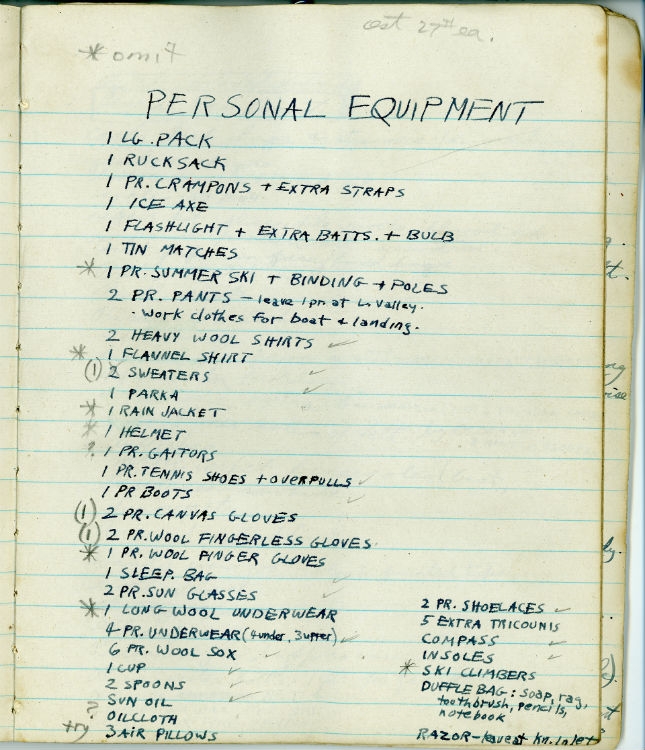 est 27# ea.
* omit
PERSONAL EQUIPMENT
1 LG. PACK
1 RUCKSACK
1 PR. CRAMPONS + EXTRA STRAPS
1 ICE AXE
1 FLASHLIGHT + EXTRA BATTS. + BULB
1 TIN MATCHES
* 1 PR. SUMMER SKI + BINDING + POLES
2 PR. PANTS - leave 1 pr. at Valley.
· Work clothes for boat + landing.
2 HEAVY WOOL SHIRTS ✓
* 1 FLANNEL SHIRT
(1) 2 SWEATERS ✓
1 PARKA ✓
* 1 RAIN JACKET
* 1 HELMET
? 1 PR. GAITORS
1 PR. TENNIS SHOES + OVERPULLS ✓
1 PR BOOTS ✓
(1) 2 PR. CANVAS GLOVES
(1) 2 PR. WOOL FINGERLESS GLOVES
* 1 PR. WOOL FINGER GLOVES
1 SLEEP. BAG ✓
2 PR. SUN GLASSES ✓
* 1 LONG WOOL UNDERWEAR
4 PR. UNDERWEAR (4 under, 3 upper) ✓
6 PR. WOOL SOX ✓
1 CUP ✓
2 SPOONS ✓
SUN OIL ✓
? OILCLOTH
try 3 AIR PILLOWS
2 PR. SHOELACES ✓
5 EXTRA TRICOUNIS
COMPASS ✓
INSOLES ✓
* SKI CLIMBERS
DUFFLE BAG: soap, rag,
toothbrush, pencils,
notebook
RAZOR - leave at Kn. Inlet